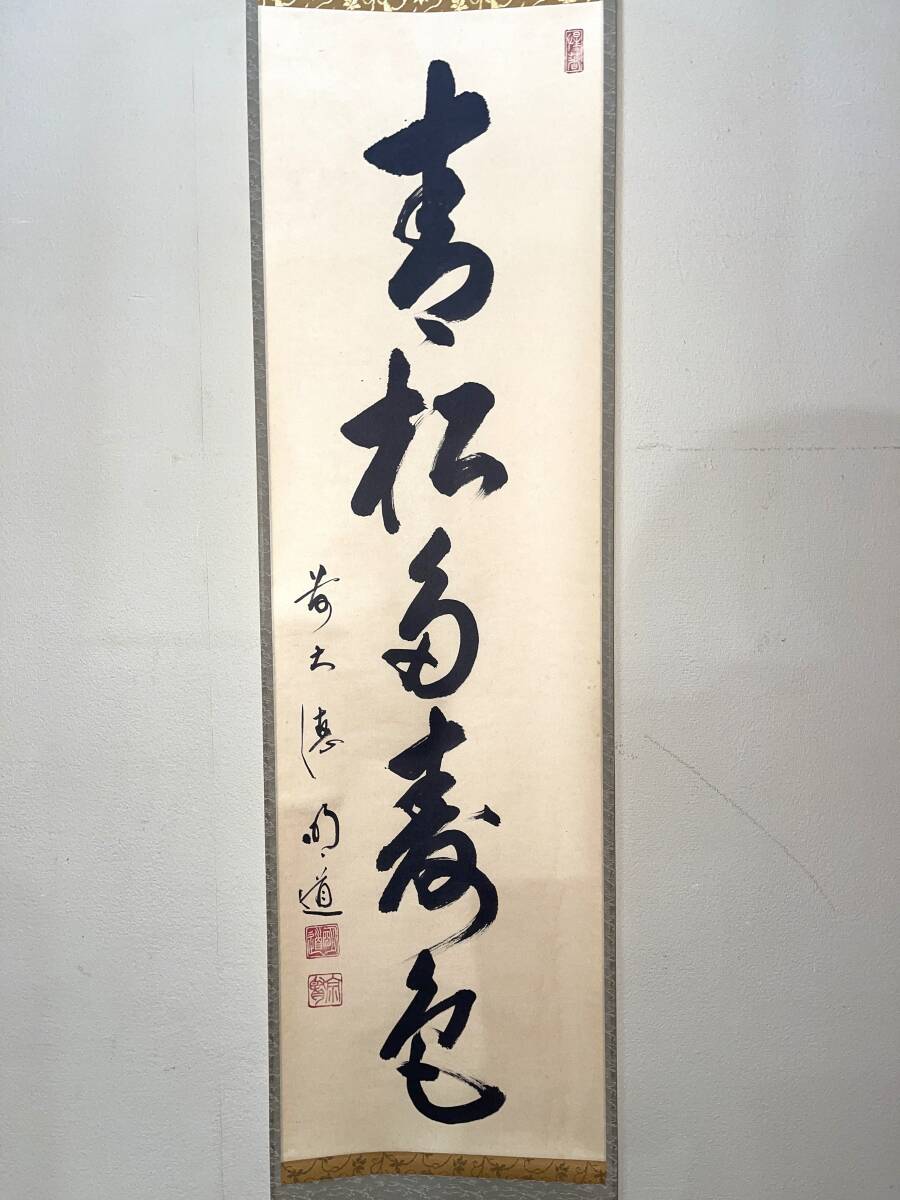 青松多寿色
前大徳明道